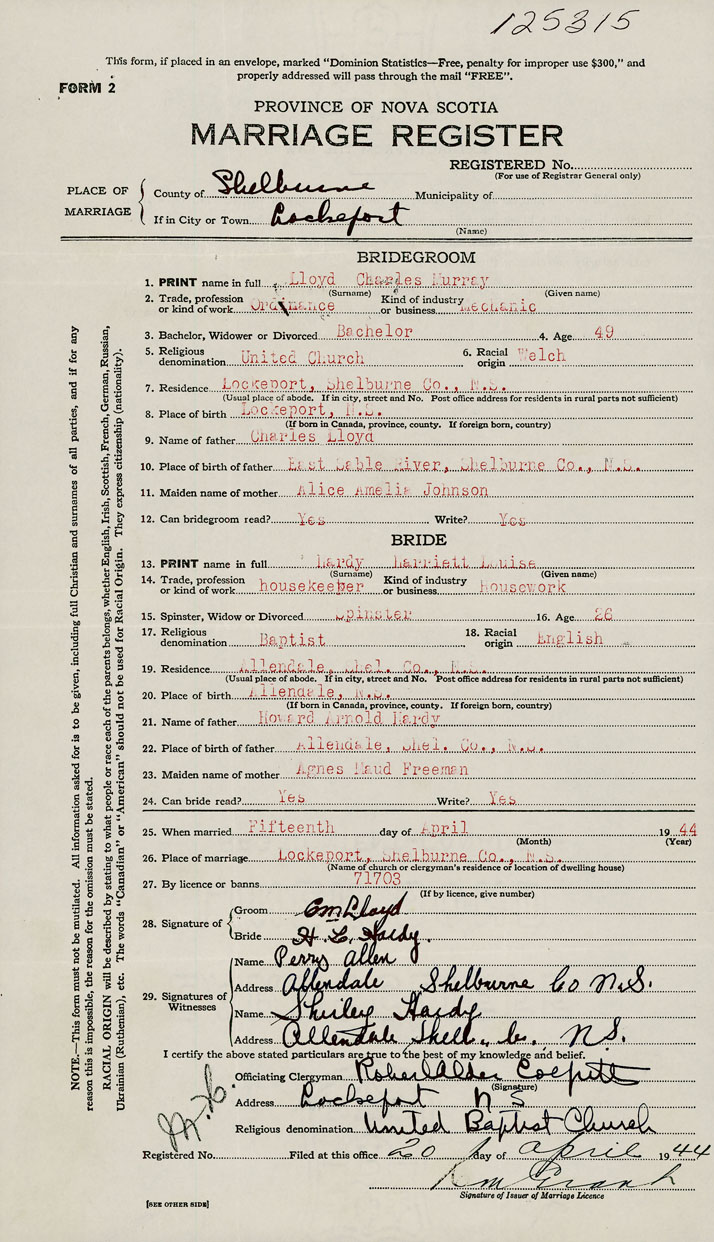 125315
This form, if placed in an envelope, marked "Dominion Statistics—Free, penalty for improper use $300," and
properly addressed will pass through the mail "FREE".
FORM 2
PROVINCE OF NOVA SCOTIA
MARRIAGE REGISTER
REGISTERED No.
(For use of Registrar General only)
PLACE OF MARRIAGE
County of Shelburne Municipality of
If in City or Town Lockeport
(Name)
BRIDEGROOM
1. PRINT name in full Lloyd Charles Murray
(Surname) (Given name)
2. Trade, profession or kind of work Ordinance Kind of industry or business Mechanic
3. Bachelor, Widower or Divorced Bachelor 4. Age 49
5. Religious denomination United Church 6. Racial origin Welch
7. Residence Lockeport, Shelburne Co., N.S.
(Usual place of abode. If in city, street and No. Post office address for residents in rural parts not sufficient)
8. Place of birth Lockeport, N.S.
(If born in Canada, province, county. If foreign born, country)
9. Name of father Charles Lloyd
10. Place of birth of father East Sable River, Shelburne Co., N.S.
11. Maiden name of mother Alice Amelia Johnson
12. Can bridegroom read? Yes Write? Yes
BRIDE
13. PRINT name in full Hardy Harriett Louise
(Surname) (Given name)
14. Trade, profession or kind of work housekeeper Kind of industry or business housework
15. Spinster, Widow or Divorced Spinster 16. Age 26
17. Religious denomination Baptist 18. Racial origin English
19. Residence Allendale, Shel. Co., N.S.
(Usual place of abode. If in city, street and No. Post office address for residents in rural parts not sufficient)
20. Place of birth Allendale, N.S.
(If born in Canada, province, county. If foreign born, country)
21. Name of father Howard Arnold Hardy
22. Place of birth of father Allendale, Shel. Co., N.S.
23. Maiden name of mother Agnes Maud Freeman
24. Can bride read? Yes Write? Yes
25. When married Fifteenth day of April 1944
(Month) (Year)
26. Place of marriage Lockeport, Shelburne Co., N.S.
(Name of church or clergyman's residence or location of dwelling house)
27. By licence or banns 71703
(If by licence, give number)
28. Signature of
Groom CM Lloyd
Bride H. L. Hardy.
29. Signatures of Witnesses
Name Perry Allen
Address Allendale Shelburne Co N.S.
Name Shirley Hardy
Address Allendale Shel., Co. N.S.
I certify the above stated particulars are true to the best of my knowledge and belief.
Officiating Clergyman Robert Alder
(Signature)
Address Lockeport N S
Religious denomination United Baptist Church
Registered No. Filed at this office 20 day of April 1944
Signature of Issuer of Marriage Licence
[SEE OTHER SIDE]
NOTE.—This form must not be mutilated. All information asked for is to be given, including full Christian and surnames of all parties, and if for any
reason this is impossible, the reason for the omission must be stated.
RACIAL ORIGIN will be described by stating to what people or race each of the parents belongs, whether English, Irish, Scottish, French, German, Russian,
Ukrainian (Ruthenian), etc. The words "Canadian" or "American" should not be used for Racial Origin. They express citizenship (nationality).